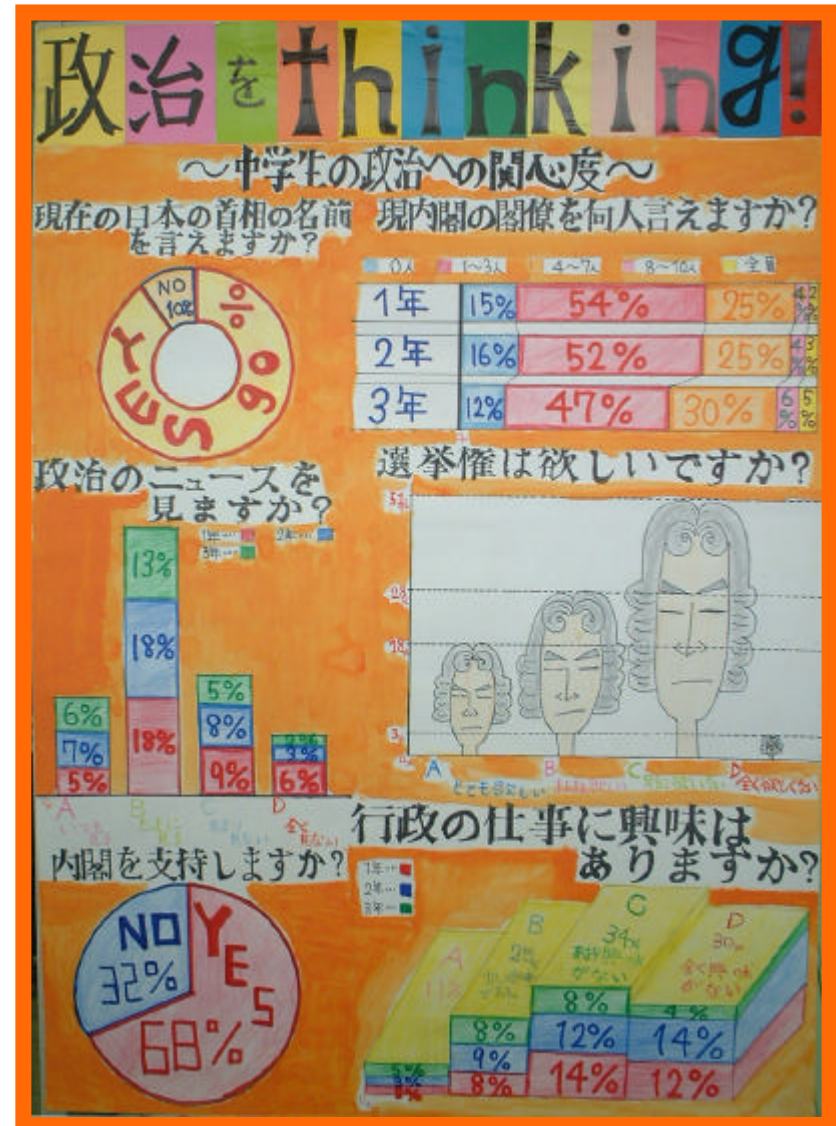 政治をthinking!
～中学生の政治への関心度～
現在の日本の首相の名前
を言えますか?
NO
10%
YES 90%
現内閣の閣僚を何人言えますか?
0人 1～3人 4～7人 8～10人 全員
1年 15% 54% 25% 4% 2%
2年 16% 52% 25% 4% 3%
3年 12% 47% 30% 6% 5%
政治のニュースを
見ますか?
1年… 2年…
3年…
13%
18%
18%
6%
7%
5%
5%
8%
9%
3%
6%
A B C D
選挙権は欲しいですか?
28
18
3
A B C D
とても欲しい 全く欲しくない
内閣を支持しますか?
NO
32%
YES
68%
行政の仕事に興味は
ありますか?
1年…
2年…
3年…
A
11%
B
C
34%
がない
D
30%
全く興味
がない
8%
9%
8%
8%
12%
14%
4%
14%
12%